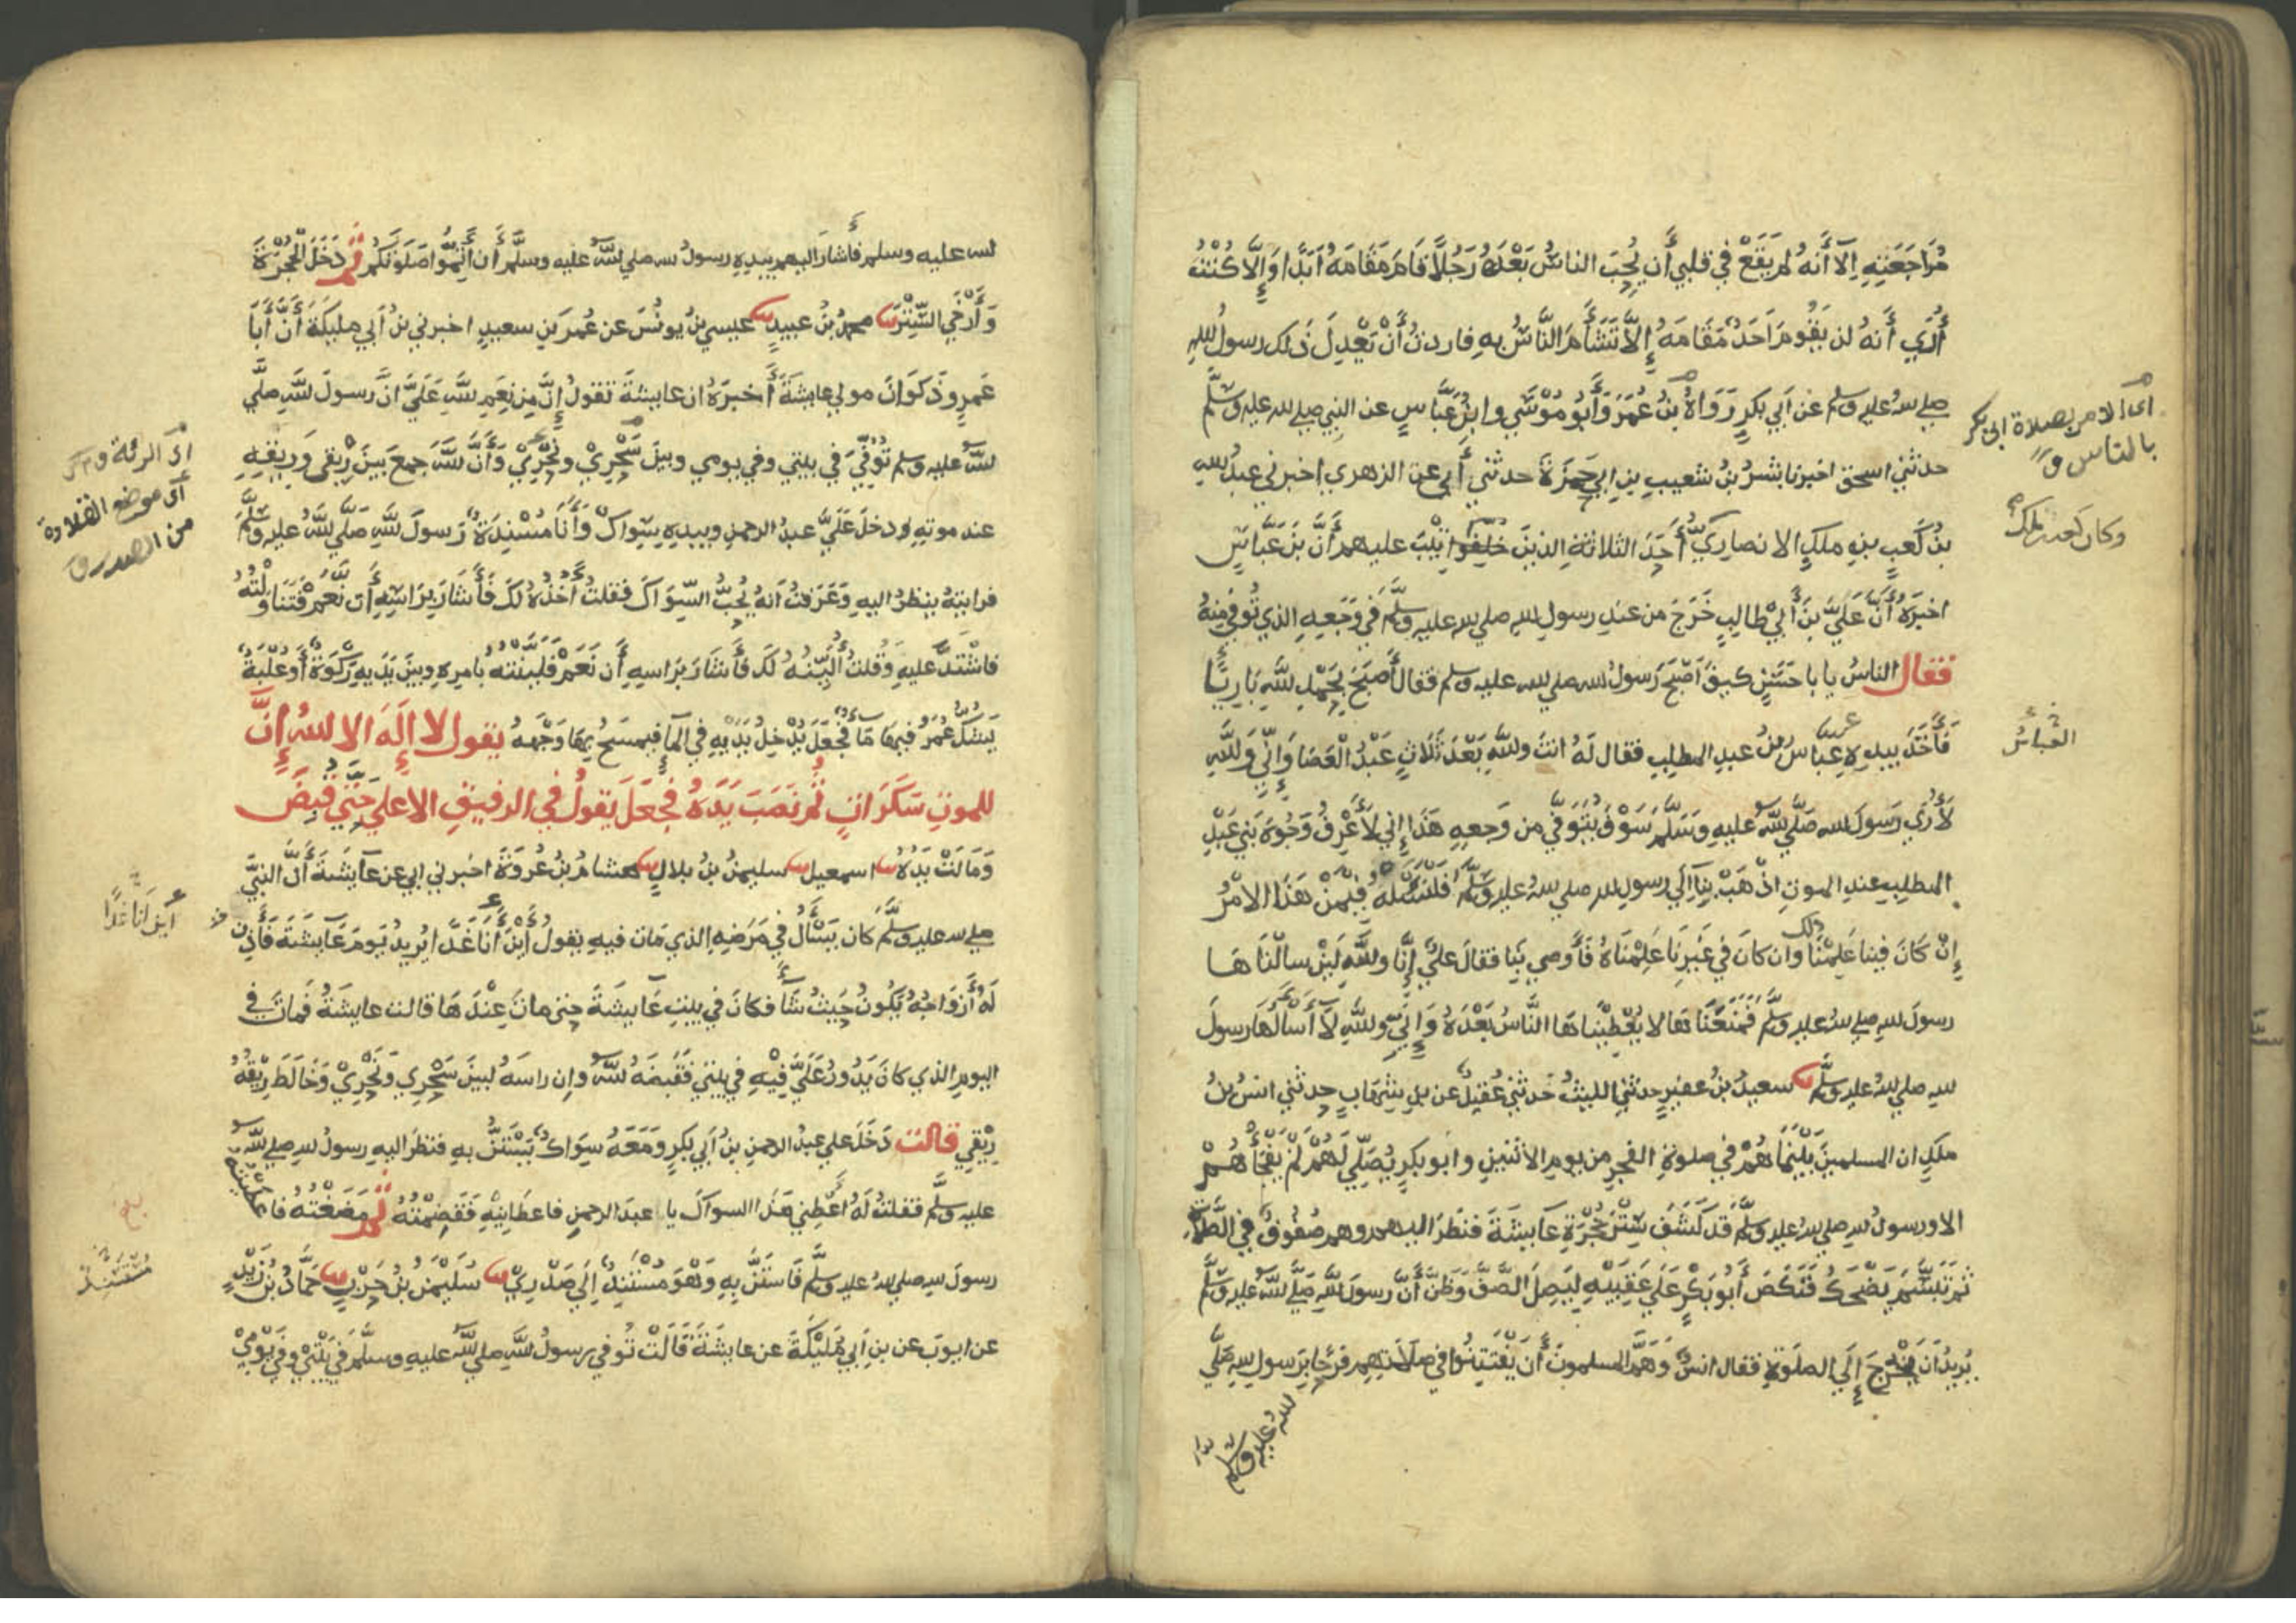 مُرَاجَعَتِهِ اِلَّا أَنَّهُ لم يَقَعْ في قلبي أَن يُحِبَّ الناسُ بَعْدَهُ رَجُلًا قَامَ مَقَامَهُ أَبَدًا وَإِلَّا كُنْتُ
أُرَي أَنهُ لن يَقُومَ اَحَدٌ مَقَامَهُ إِلَّا تَشَأَّمَ النَّاسُ بهِ فاردتُ أَنْ يَعْدِلَ ذَلك رسولُ اللهِ
صلى الله عليه وسلم عن اَبي بكرٍ رَوَاهُ بنُ عُمَرَ وَأَبُو مُوْسَي وابنُ عَبَّاسٍ عن النبي صلى الله عليه وسلم
حدثني اسحق اخبرنا بِشرُ بنُ شعيبِ بنِ ابي حَمزَةَ حدثني أَبي عن الزهري اخبرني عبدُ الله
بنُ كَعبِ بنِ ملكٍ الانصاريُّ أَحَدُ الثلاثةِ الذينَ خُلِّفُوا تِيْبَ عليهم أَنَّ بنَ عَبَّاسٍ
اخبَرَهُ أَنَّ عَلَيَّ بنَ أَبِيْ طالبٍ خَرَجَ من عندِ رسولِ اللهِ صلى الله عليه وسلم في وَجَعِهِ الذي تُوفي منهُ
فقال الناسُ يا با حَسَنٍ كيفَ اَصْبَحَ رَسولُ الله صلى الله عليه وسلم فقال أَصبَحَ بِحَمْدِ اللهِ بَارِيًا
فَأَخَذَ بيدِهِ عباس بنُ عبدِ المطلِبِ فقال لَهُ انتَ واللهِ بَعْدَ ثَلَاثٍ عَبْدُ الْعَصَا وَإِنِّي وَاللهِ
لَأُرَى رَسولَ الله صَلَّي اللهُ عليهِ وَسَلَّمَ سَوْفَ يُتَوَفَّي من وَجعِهِ هَذَا إِنِي لَأَعْرِفُ وَجُوهَ بَنِي عَبْدِ
المطلِبِ عندَ الموتِ اذْهَبْ بِنَا اِلَى رسولِ اللهِ صلى الله عليه وسلم فَلْنَسْئَلْهُ فِيْمَنْ هَذَا الامْرُ
إِنْ كَانَ فينا عَلِمْنَا ذلك وان كانَ في غَيرِنَا عَلِمْنَاهُ فَأَوصي بِنَا فقالَ عليٌّ إِنَّا واللهِ لَئِنْ سالْنَاهَا
رسولَ اللهِ صلى الله عليه وسلم فَمَنَعَنَاهَا لا يُعْطِيْنَاهَا النَّاسُ بَعْدَهُ وَإِنِّي واللهِ لَا أَسْأَلُهَا رسولَ
اللهِ صلى الله عليه وسلم سعيدُ بنُ عفيرٍ حدثنِي الليثُ حَدثنِي عُقيلٌ عن بنِ شِهَابٍ حدثني انسُ بنُ
ملكٍ ان المسلمينَ بَيْنَمَا هُمْ في صلوةِ الفجرِ من يومِ الاثنينِ وابو بكرٍ يُصَلِّي لَهُمْ لَمْ يَفْجَأْهُمْ
الا ورسولُ اللهِ صلى الله عليه وسلم قَدْ كَشَفَ سِتْرَ حُجْرَةِ عَايشَةَ فنظَرَ اليهم وهم صُفُوفٌ في الصَّلَاةِ
ثمَّ تَبَسَّمَ يَضْحَكُ فَنَكَصَ أَبُو بَكْرٍ عَلَى عَقِبَيْهِ لِيَصِلَ الصَّفَّ وَظَنَّ أَنَّ رسولَ اللهِ صَلَّى اللهُ عليه وسلم
يُريدُ اَنَ يَخْرُجَ إِلَى الصلَوةِ فقال انسٌ وَهَمَّ المسلمونَ أَن يَفْتَتِنُوا في صلاتهم فَرَحًا برسولِ اللهِ صَلَّي
الله عليه وسلم
اى الامر بصلاة ابى بكر
بالناس ق
وكان كعب بن ملك
العباسُ
الله عليه وسلم فَأشارَ اليهم بيدِهِ رسولُ الله صلي اللهُ عليه وسلَّمَ أَن أَتِمُّوا صَلَوتَكُمْ ثُمَّ دَخَلَ الْحُجْرَةَ
وَأَرْخَي السِّتْرَ محمدُ بنُ عبيدٍ عيسي بنُ يونُسَ عن عُمَرَ بنِ سعيدٍ اخبرني بنُ اَبي مليكَةَ أَنَّ أَبَا
عَمرٍو ذَكوَانَ مولي عايشَةَ أَخبرَهُ ان عايشةَ تقولُ إِنَّ مِن نِعَمِ اللهِ عَلَيَّ انَّ رسولَ اللهِ صلَّي
اللهُ عليه وسلم تُوُفِّيَ في بيتي وفي يومي وبينَ سَحْرِيْ ونَحْرِيْ وَأَنَّ اللهَ جمعَ بينَ رِيْقي وَرِيقِهِ
عند موتهِ ودخلَ عَلَيَّ عبدُ الرحمنِ وبيدِهِ سِوَاكٌ وَأَنَا مُسْنِدَةٌ رَسولَ اللهِ صَلَّي اللهُ عليه وسلم
فرايتهُ ينظرُ اليهِ وَعَرَفتُ اَنهُ يُحِبُّ السِّوَاكَ فقلتُ آخُذُهُ لَكَ فَأَشَارَ بِرَاسِهِ أَن نَعَمْ فَتَنَاوَلْتُهُ
فاشْتَدَّ عليهِ وَقُلتُ أُلَيِّنُهُ لَكَ فَأَشَارَ بِرَاسِهِ أَن نَعَمْ فَلَيَّنْتُهُ بامرهِ وبينَ يَدَيهِ رَكْوَةٌ أَو عُلْبَةٌ
يَشُكُّ عُمَرُ فيهَا مَاءٌ فَجَعَلَ يُدْخِلُ يَدَيْهِ في المآءِ فيمسَحُ بِهَا وَجْهَهُ يقول لا إِلَهَ الا اللهُ إِنَّ
للموتِ سَكَرَاتٍ ثُمَّ نَصَبَ يَدَهُ فجَعَلَ يقولُ في الرفيقِ الاعلي حَتَّي قُبِضَ
وَمَالَتْ يَدُهُ اسمعيل سليمنُ بنُ بلالٍ هشامُ بنُ عُروَةَ اخبرني ابي عن عآيشَةَ أَنَّ النبيَّ
صلى الله عليه وسلم كان يَسْأَلُ في مَرَضِهِ الذي مَات فيهِ يقولُ أَيْنَ أَنَا غَدًا يُريدُ يَومَ عَايشَةَ فَأَذِنَّ
لَهُ أَزوَاجُهُ يَكُونُ حَيثُ شَاءَ فكانَ في بيتِ عَآيشَةَ حتى ماتَ عِنْدَهَا قالت عايشَةُ فَماتَ في
اليومِ الذي كانَ يَدُورُ عَلَيَّ فِيْهِ في بيتي فَقَبضَهُ اللهُ وإن راسَهُ لبينَ سَحْرِي ونَحْرِيْ وَخَالَطَ رِيقُهُ
رِيْقِي قالت دَخَلَ علي عبدُ الرحمنِ بنُ اَبي بكرٍ وَمَعَهُ سِوَاكٌ يَسْتَنُّ بهِ فنظرَ اليهِ رسولُ اللهِ صلى اللهُ
عليه وسلم فقلتُ لَهُ أَعْطِني هذَا السوَاكَ يا عبدَ الرحمنِ فاعطَانِيْهِ فَقَضِمْتُهُ ثُمَّ مَضَغْتُهُ فاعطيته
رسولَ اللهِ صلى الله عليه وسلم فَاسْتَنَّ بهِ وَهُوَ مُسْتَنِدٌ اِلَي صَدْرِيْ سُلَيْمَنُ بنُ حَرْبٍ حَمَّادُ بنُ زَيْدٍ
عن ايوبَ عن بنِ اَبي مُلَيْكَةَ عن عايشَةَ قَالَتْ تُوفي رسولُ اللهِ صلي اللهُ عليهِ وسلَّمَ في بَيْتِيْ وفي يَوْمِيْ
اى الرئة
اى موضع القلادة
من الصدر ق
اين انا غدًا
مُسْتَنِدٌ